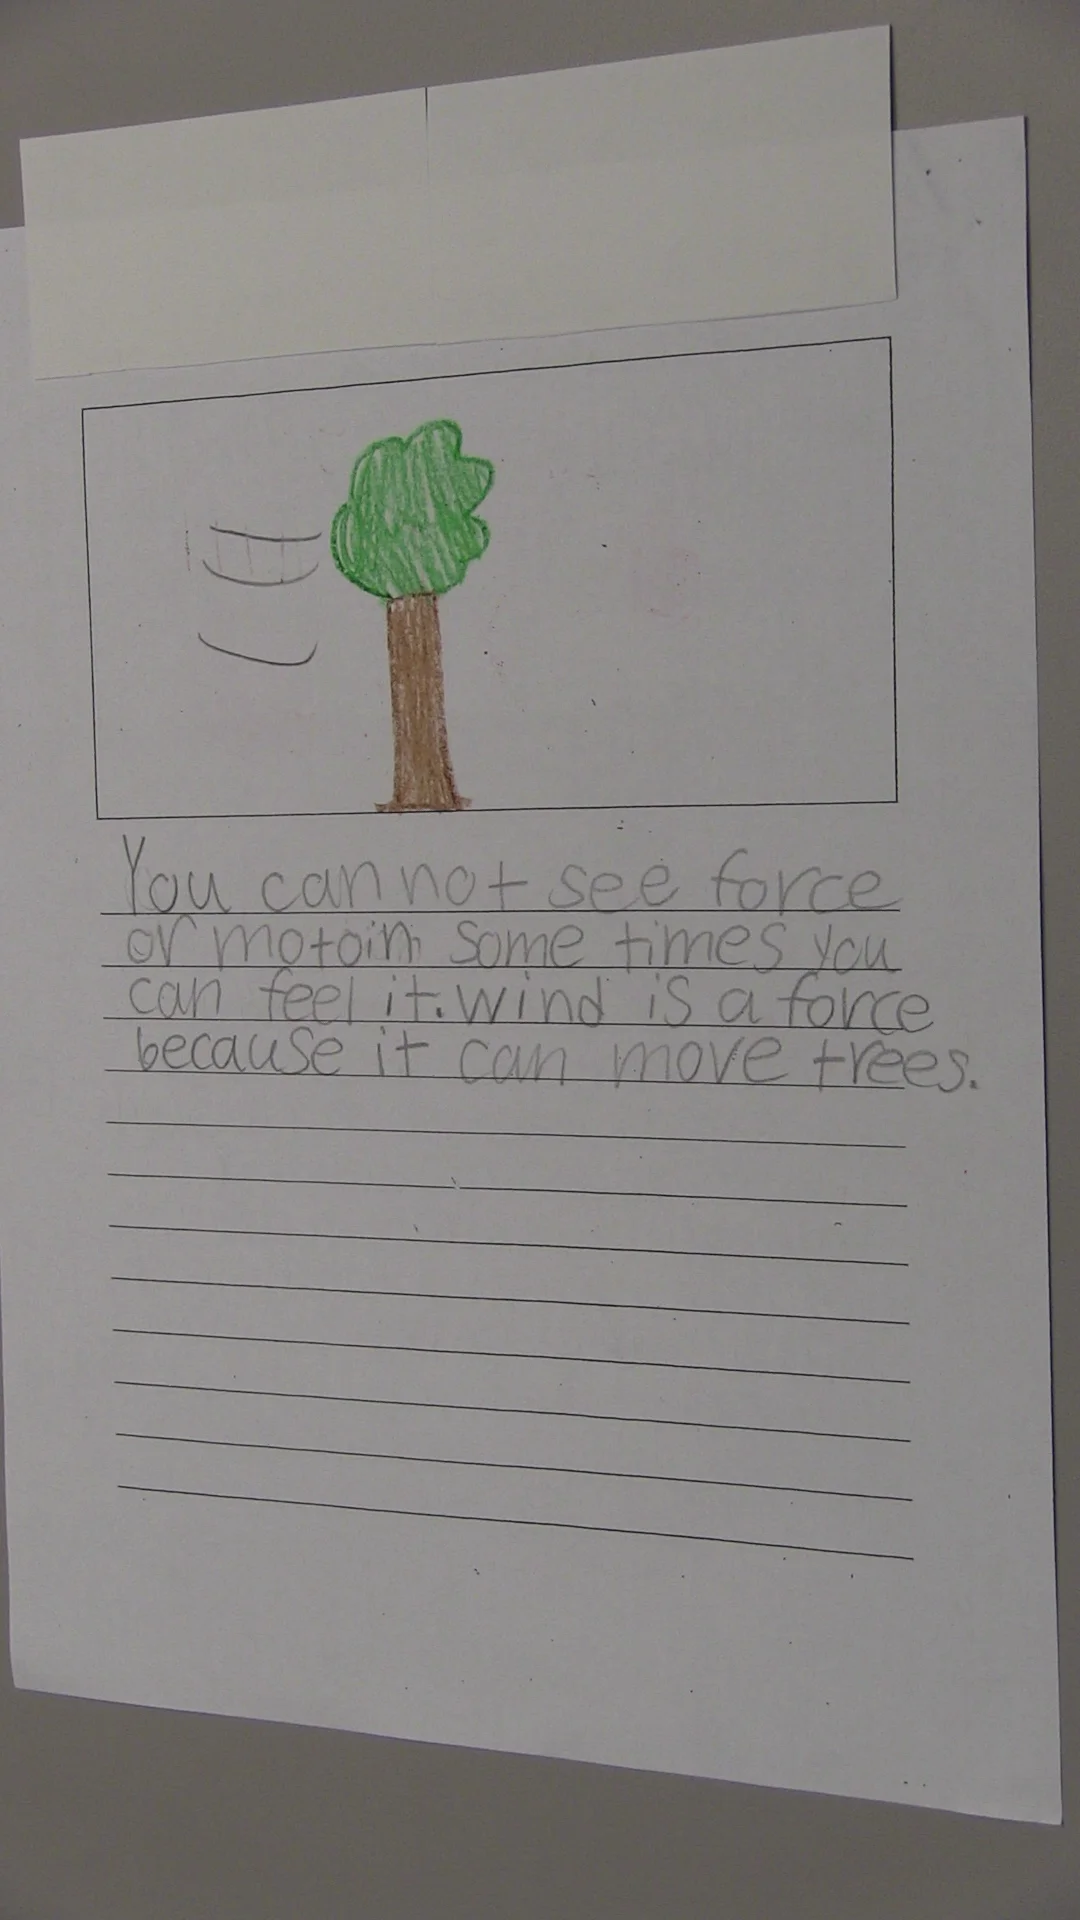 You can not see force
or motoin some times you
can feel it. wind is a force
because it can move trees.